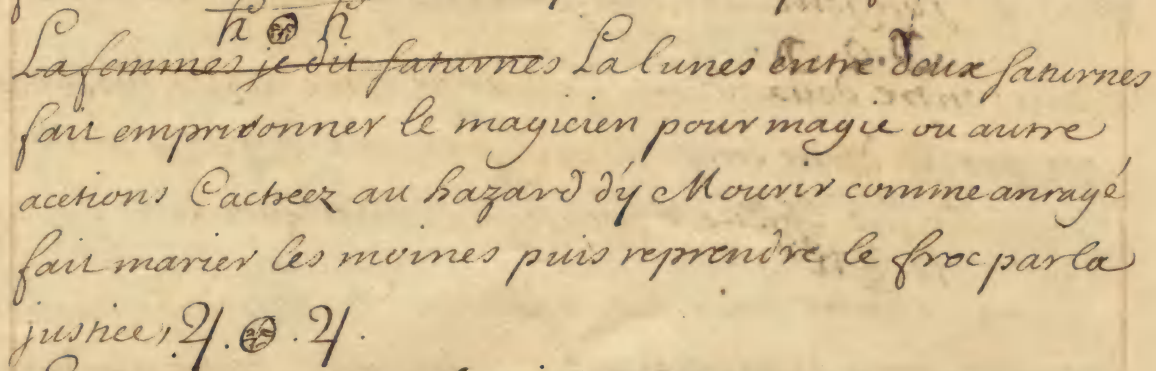 ♄ ☉ ♄
La femmes je dit saturnes La lunes entre deux saturnes
fait emprisonner le magicien pour magie ou autre
acetions Cacheez au hazard d'y Mourir comme anragé
fait marier les moines puis reprendre le froc par la
justice, ♃. ☉ . ♃.